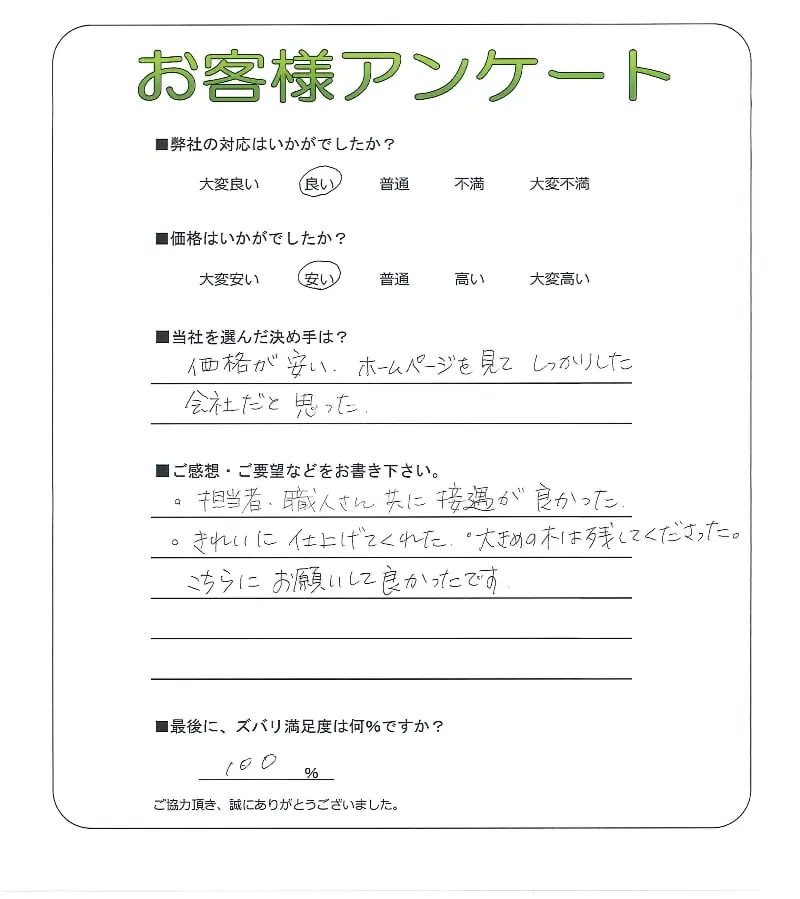 お客様アンケート
■弊社の対応はいかがでしたか？
大変良い 良い 普通 不満 大変不満
■価格はいかがでしたか？
大変安い 安い 普通 高い 大変高い
■当社を選んだ決め手は？
価格が安い. ホームページを見て しっかりした
会社だと思った.
■ご感想・ご要望などをお書き下さい。
。担当者・職人さん共に接遇が良かった.
。きれいに仕上げてくれた.。大きめの木は残してくださった。
こちらにお願いして良かったです.
■最後に、ズバリ満足度は何%ですか？
100 %
ご協力頂き、誠にありがとうございました。